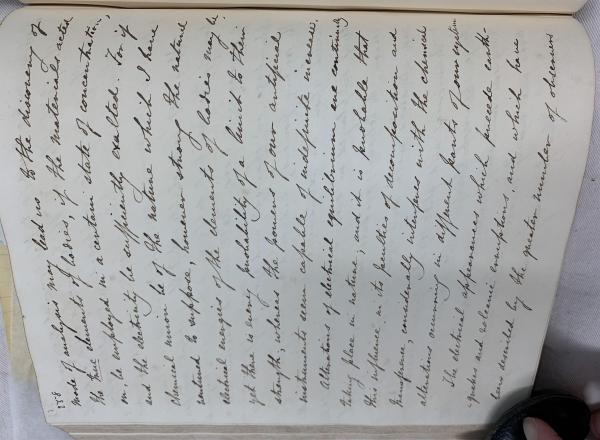 238
mode of analysis may lead us to the discovery of
the true elements of bodies, if the materials acted
on be employed in a certain state of concentration,
and the electricity be sufficiently exalted. For if
chemical union be of the nature which I have
ventured to suppose, however strong the natural
electrical energies of the elements of bodies may be,
yet there is every probability of a limit to their
strength, whereas the powers of our artificial
instruments seem capable of indefinite increase.
Alterations of electrical equilibrium are continually
taking place in nature; and it is probable that
this influence in its faculties of decomposition and
transference, considerably interferes with the chemical
alterations occurring in different parts of our system
The electrical appearances which precede earth-
quakes and volcanic eruptions, and which have
been described by the greater number of observers